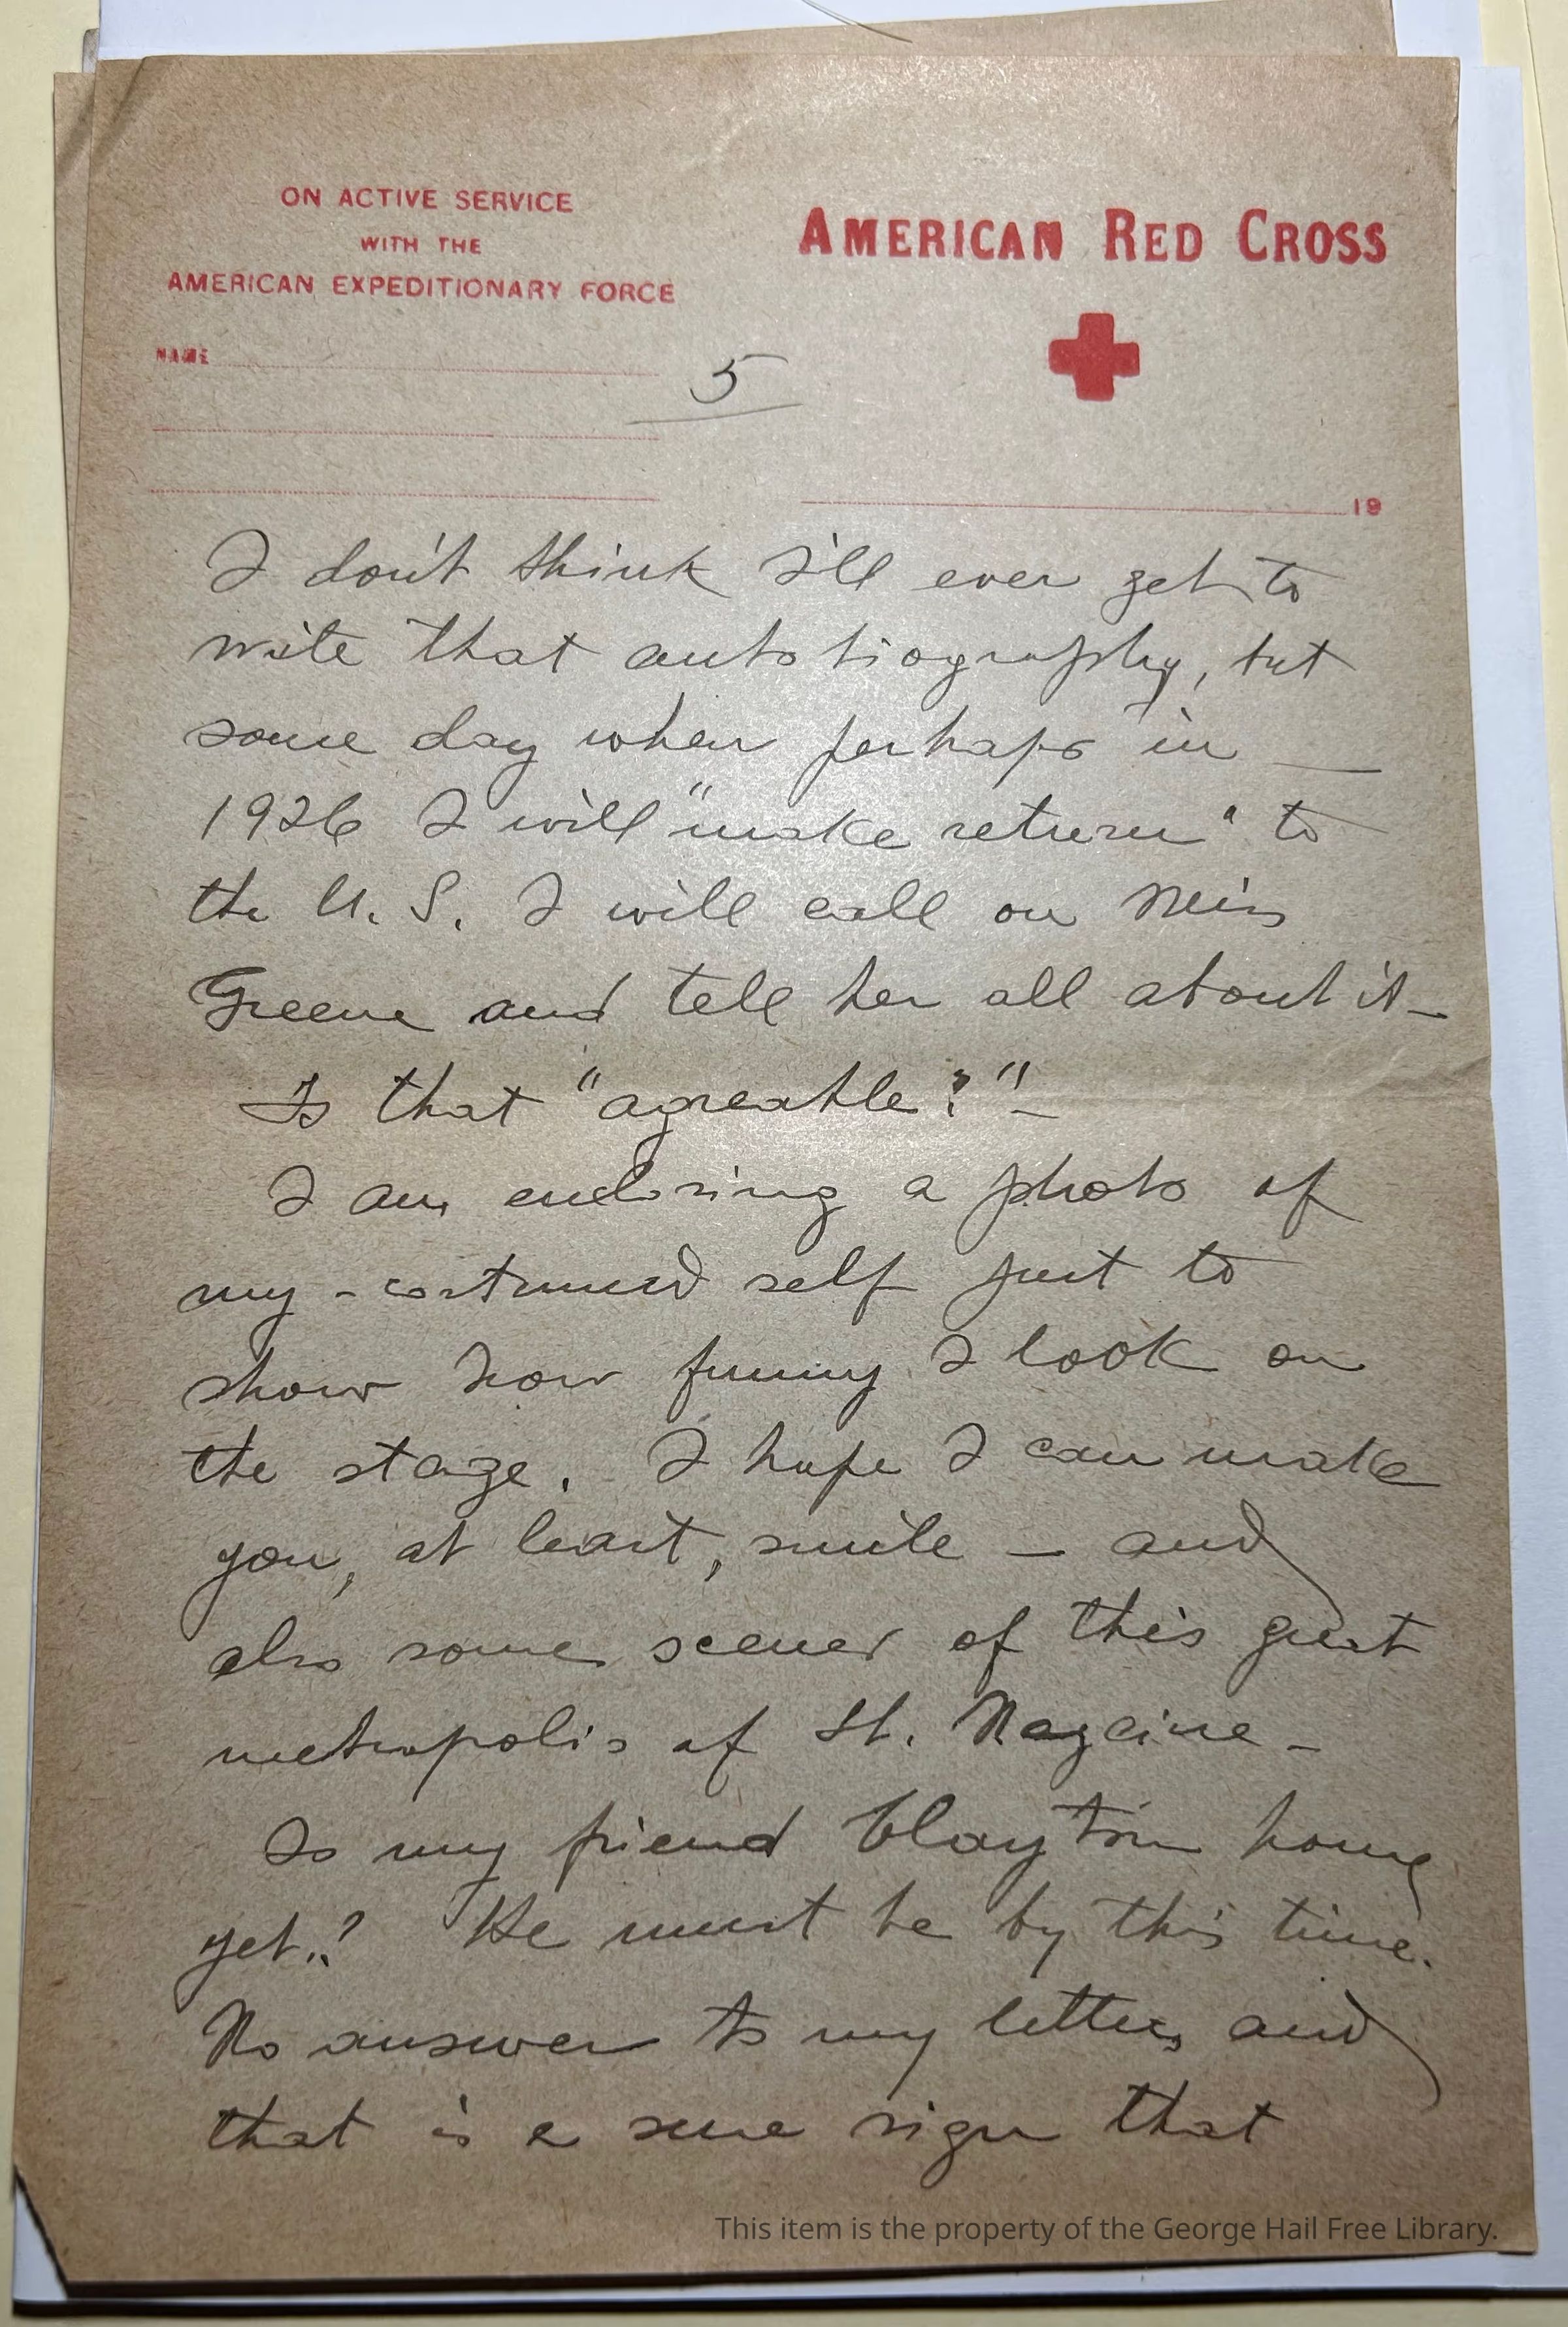 ON ACTIVE SERVICE
WITH THE
AMERICAN EXPEDITIONARY FORCE
AMERICAN RED CROSS
NAME
5
19
I don't think I'll ever get to
write that autobiography, but
some day when perhaps in —
1926 I will "make return" to
the U. S. I will call on Miss
Greene and tell her all about it —
Is that "agreable?" —
I am enclosing a photo of
my - costumed self just to
show how funny I look on
the stage. I hope I can make
you, at least, smile — and
also some scenes of this great
metropolis of St. Nazaire —
Is my friend Clayton home
yet..? He must be by this time.
No answer to my letters and
that is a sure sign that
This item is the property of the George Hail Free Library.